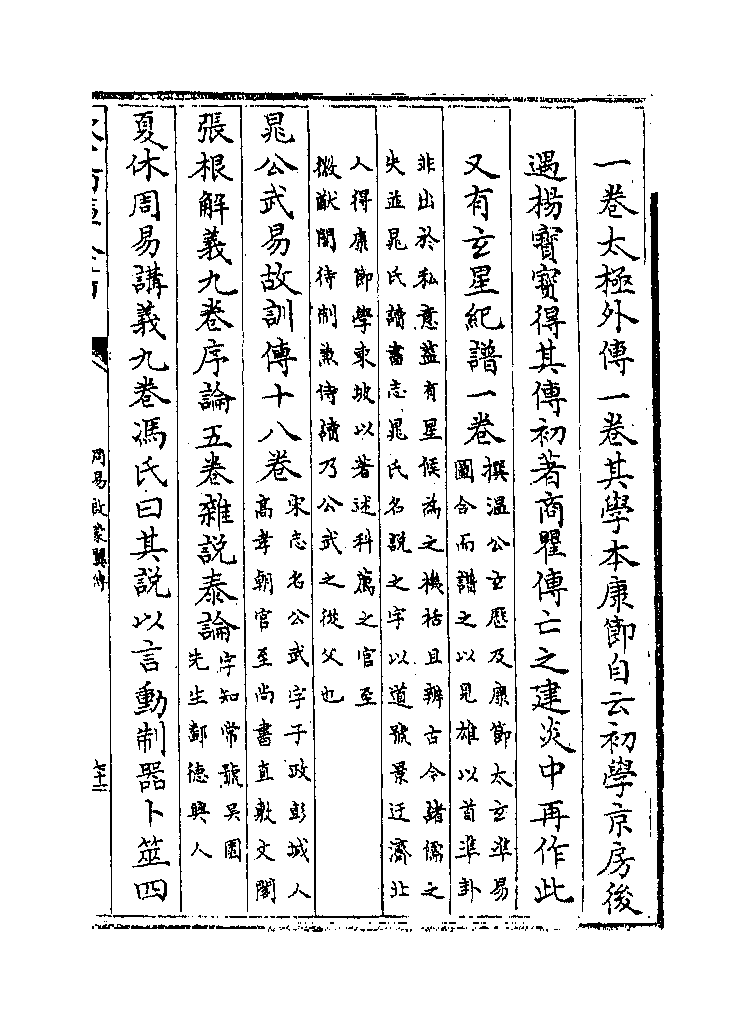 一卷太極外傳一卷其學本康節自云初學京房後
遇楊寳寳得其傳初著商瞿傳亡之建炎中再作此
又有𤣥星紀譜一卷
撰温公𤣥歴及康節太𤣥準易
圖合而譜之以見雄以首準卦
非出於私意蓋有星候為之機括且辨古今諸儒之
失並晁氏讀書志晁氏名説之字以道號景迂濟北
人得康節學東坡以著述科薦之官至
徽猷閣待制兼侍讀乃公武之從父也
晁公武易故訓傳十八卷
宋志名公武字子政彭城人
高孝朝官至尚書直敷文閣
張根解義九卷序論五卷雜説泰論
字知常號吳園
先生鄱德興人
夏休周易講義九卷馮氏曰其説以言動制器卜筮四
周易啟蒙翼傳
七十二